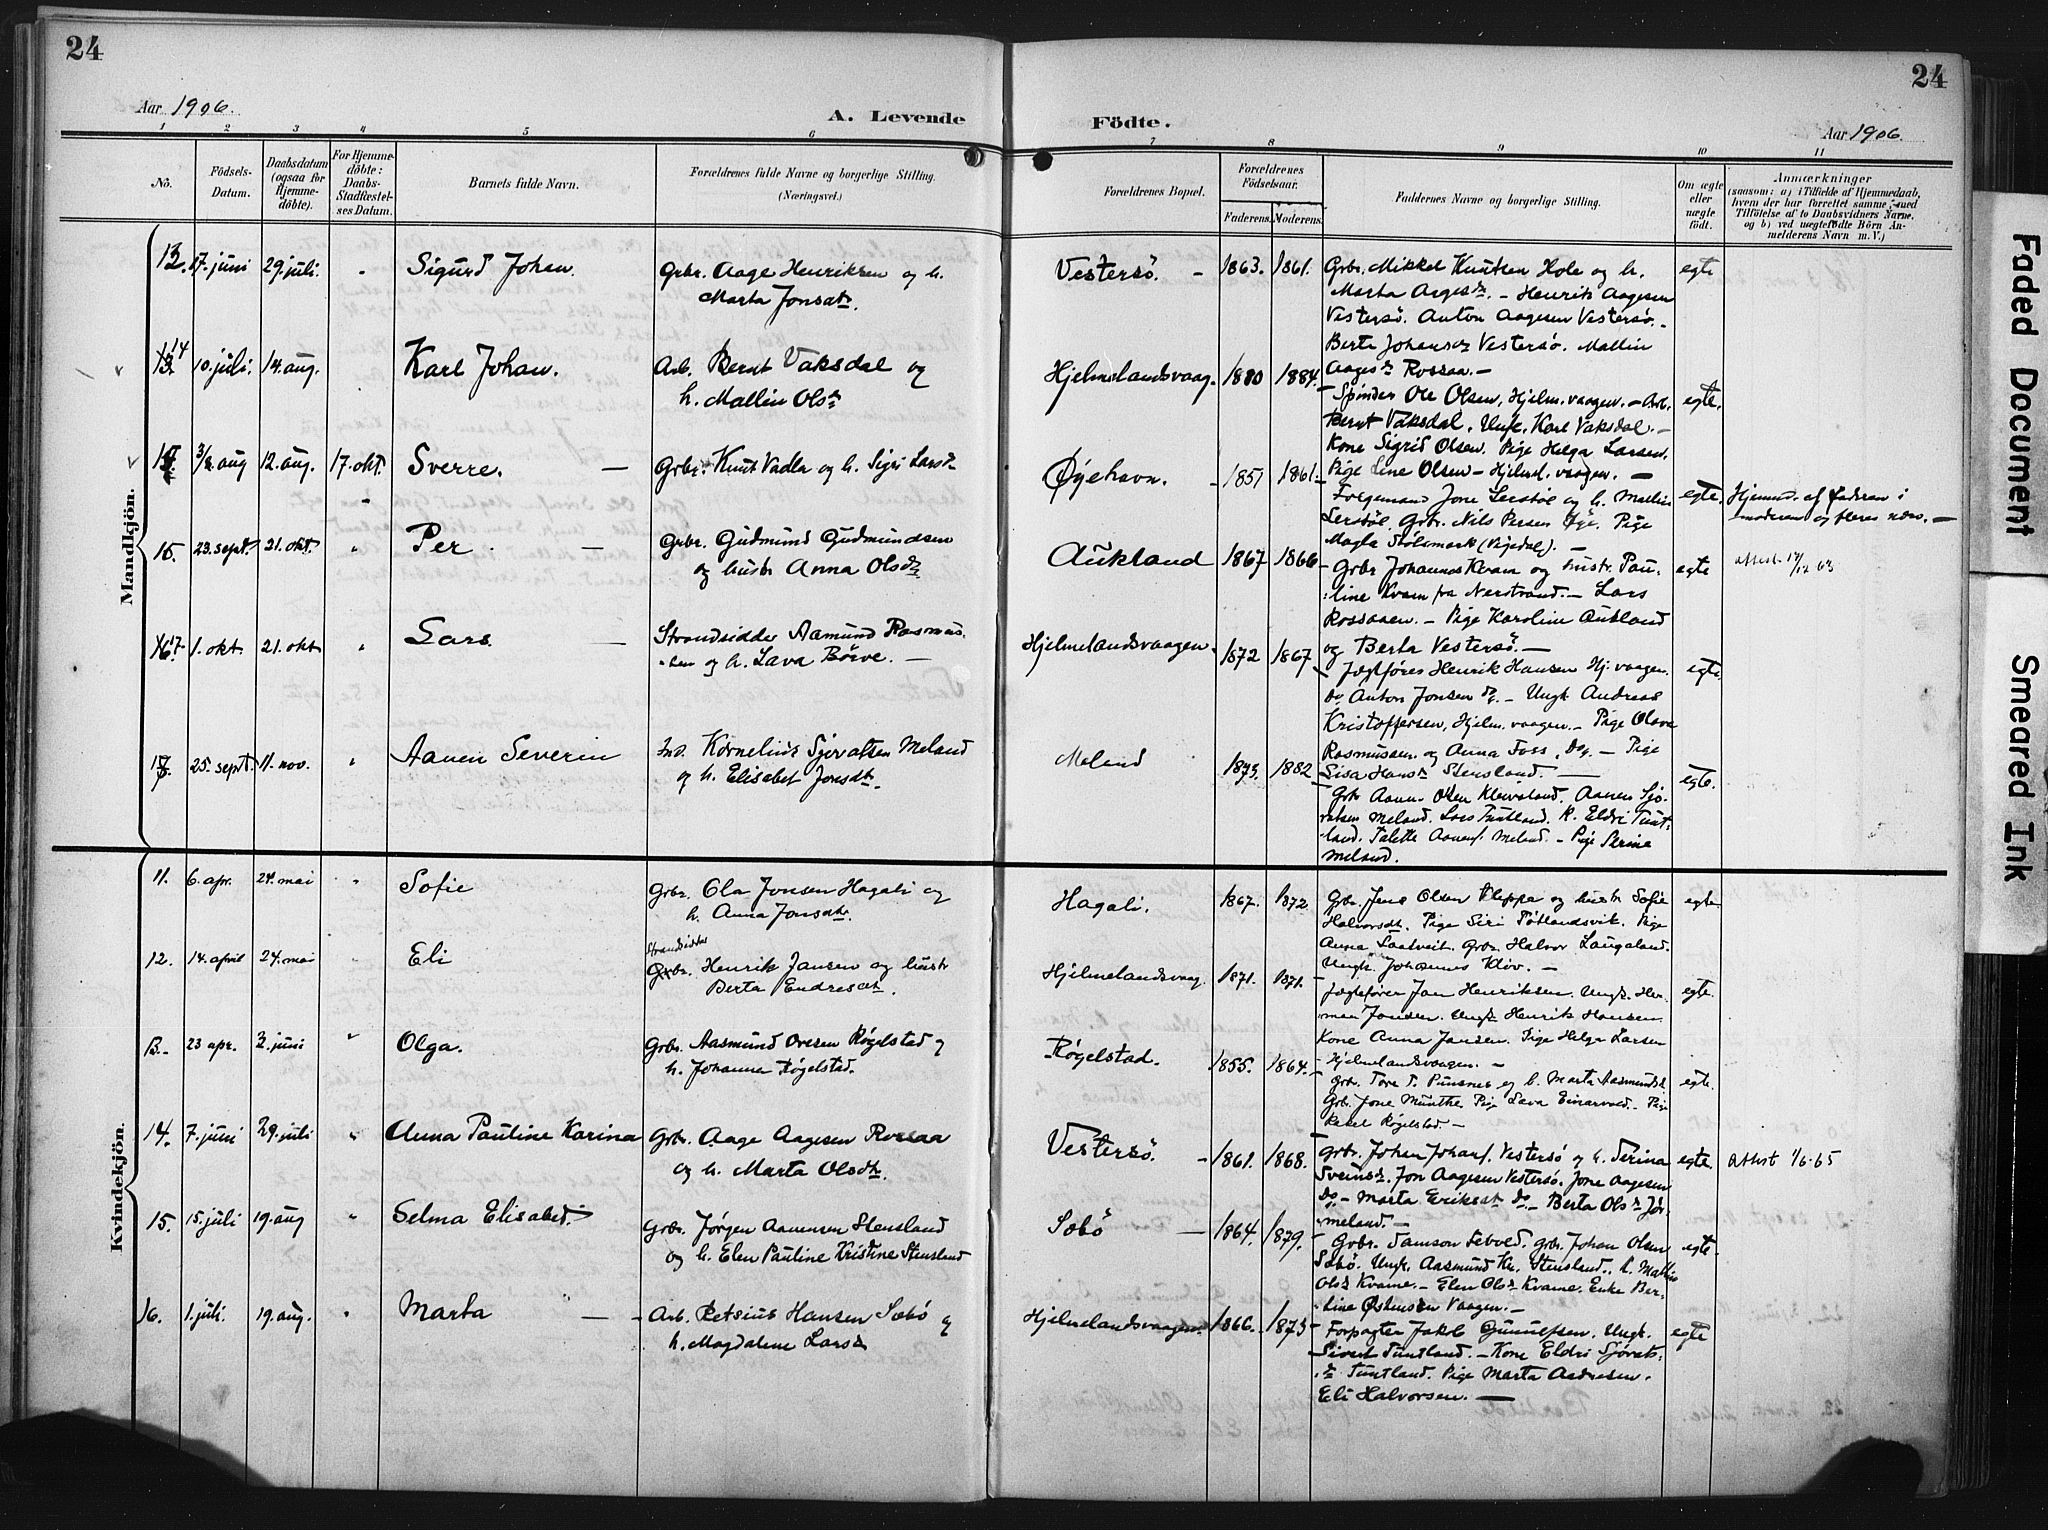 24
24
Aar 1906.
A. Levende
Födte.
Aar 1906.
1 2 3 4 5 6 7 8 9 10 11
No.
Födsels-
Datum.
Daabsdatum
(ogsaa for
Hjemme-
döbte).
For Hjemme-
döbte:
Daabs-
Stadfæstel-
ses Datum.
Barnets fulde Navn.
Forældrenes fulde Navne og borgerlige Stilling.
(Næringsvei.)
Forældrenes Bopæl.
Forældrenes
Födselsaar.
Faderens.
Moderens.
Faddernes Navne og borgerlige Stilling.
Om ægte
eller
uægte
födt.
Anmærkninger
(saasom: a) i Tilfælde af Hjemmedaab,
hvem der har forrettet samme, med
Tilföielse af to Daabsvidners Navne,
og b) ved uægtefödte Börn An-
melderens Navn m. V.)
Mandkjön.
13. 17. juni 29. juli. " Sigurd Johan. Grbr. Aage Henriksen og h.
Marta Jonsdtr.
Vestersö. 1863. 1861. Grbr. Mikkel Knutsen Hole og h. egte
Marta Aagesdtr. – Henrik Aagesen
Vestersö. Anton Aagesen Vestersö. –
Berte Johansdtr Vestersö. Mallin
Aagesdtr Rossaa. –
14 10. juli. 14. aug. Karl Johan. Arb. Bernt Vaksdal og
h. Mallin Olsdtr
Hjelmelandsvaag. 1880 1884. Spinder Ole Olsen, Hjelm. vaagen. – Arb. egte.
Bernt Vaksdal. Ungk. Karl Vaksdal. –
Kone Sigrid Olsen. Pige Helga Larsen.
Pige Line Olsen – Hjelml. vaagen. –
3/8. aug 12. aug. 17. okt. Sverre. – Grbr. Knut Vadla og h. Sigri Larsdtr
Øyehavn. 1857 1861. Forgemand Jone Lerstöl og h. Malin egte.
Lerstöl. Grbr. Nils Persen Øye. Pige
Magla Stölsmark (Vigedal). –
Hjemmed. af faderen i
moderens og fleres nærv. –
16. 23. sept. 21. okt. " Per – Grbr. Gudmund Gudmundsen
og hustr Anna Olsdtr
Aukland 1867 1866 Grbr Johannes Kvam og hustr. Pau- egte
line Kvam fra Nerstrand. – Lars
Rossaaen. – Pige Karoline Aukland
og Berta Vestersö. –
attest 17/12 63
17 1. okt. 21. okt " Lars. – Strandsidder Aamund Rasmus-
sen og h. Lava Börve. –
Hjelmelandsvaagen. 1872 1867 Jægtförer Henrik Hansen Hj. vaagen. egte.
Do Anton Jonsen do. – Ungk Andreas
Kristoffersen, Hjelm. vaagen. – Pige Olava
Rasmussen og Anna Foss, do. – Pige
Sisa Hansdtr Stensland. –
25. sept. 11. nov. " Aanen Severin Ind. Kornelius Sjervatsen Meland
og h. Elisabet Jonsdtr.
Meland 1873. 1882 Grbr Aanen Olsen Kleivaland. Aanen Sjo- egte.
vatsen Meland. Lars Tuntland. K. Eldri Tunt-
land. Talette Aanens. Meland. – Pige Serine
Meland.
Kvindekjön.
11. 6. apr. 24. mai " Sofie Grbr. Ola Jonsen Hagali og
h. Anna Jonsdtr.
Hagali. 1867. 1872 Grbr. Jens Olsen Kleppa og hustr Sofie egte.
Halvorsdtr. Pige Siri Pøtlandsvik. Pige
Anna Laatveit. Grbr. Halvor Laugaland.
Ungk. Johannes Kløv. –
12. 14. april 24. mai " Eli Strandsidder
Grbr. Henrik Jansen og hustr
Berta Endresdtr.
Hjelmelandsvaag. 1871. 1871. Jægtefører Jan Henriksen. Ungk. Her- egte.
man Jansen. Ungk Henrik Hansen.
Kone Anna Jansen. Pige Helga Larsen
Hjelmelandsvaagen. –
13. 23 apr. 3. juni " Olga. Grbr. Aasmund Ovesen Røgelstad og
h. Johanna Røgelstad.
Røgelstad. 1855. 1864. Grbr. Tore T. Punsnes og h. Marta Aasmundsdtr egte.
Grbr. Jone Munthe. Pige Lava Einarvold. – Pige
Rakel Røgelstad. –
14. 7. juni 29. juli " Anna Pauline Karina Grbr. Aage Aagesen Rossaa
og h. Marta Olsdtr.
Vestersö. – 1861. 1868. Grbr. Johan Johans. Vestersö og h. Serina egte.
Sveinsdtr. Jon Aagesen Vestersö. Jone Aagesen
Do – Marta Eriksdtr Do – Berta Olsdtr Jør-
meland. –
attest 1/6-65
15. 15. juli 19. aug " Selma Elisabet. Grbr. Jørgen Aanensen Stensland
og h. Elen Pauline Kristine Stensland
Sæbö – 1864. 1879. Grbr. Samson Sebvold. Grbr. Johan Olsen egte
Sæbö. Ungk. Aasmund Kr. Stensland. h. Mathis
Olsdtr Kvame. – Elen Olsdtr Kvame. Enke Ber-
tine Østensen Vaagen. –
16. 1. juli. 19. aug. " Marta – Arb. Retsius Hansen Sæbö og
h. Magdalene Larsdtr
Hjelmelandsvaagen. 1866. 1873 Forpagter Jakob Gunulfsen. Ungk. egte
Sivert Tuntland. – Kone Eldri Sjövats-
dtr Tuntland. Pige Marta Andresen.
Eli Halvorsen. –
Faded Document
Smeared Ink